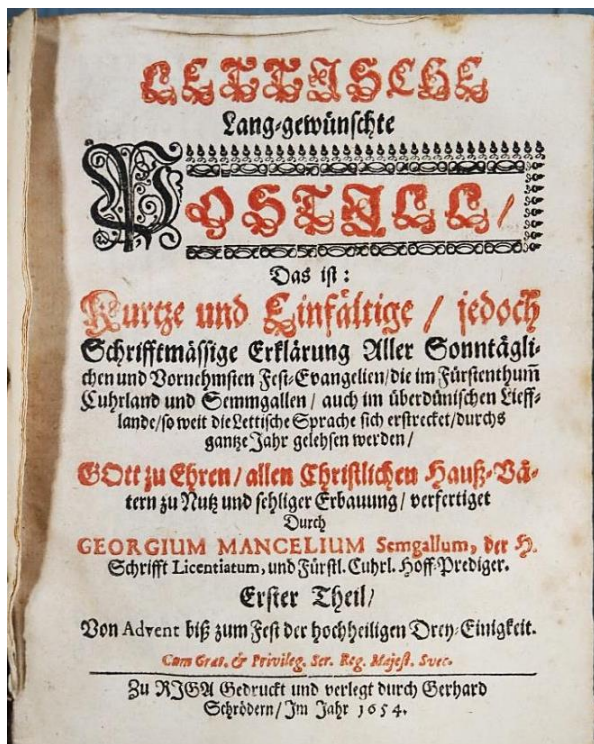 LETTISCHE
Lang-gewünschte
POSTILL/
Das ist:
Kurtze und Einfältige / jedoch
Schrifftmässige Erklärung Aller Sonntägli-
chen und Vornehmsten Fest-Evangelien/die im Fürstenthum̃
Cuhrland und Semmgallen / auch im überdünischen Lieff-
lande/so weit die Lettische Sprache sich erstrecket/durchs
gantze Jahr gelehsen werden/
GOtt zu Ehren / allen Christlichen Hauß-Vä-
tern zu Nutz und sehliger Erbauung / verfertiget
Durch
GEORGIUM MANCELIUM Semgallum, der H.
Schrifft Licentiatum, und Fürstl. Cuhrl. Hoff-Prediger.
Erster Theil/
Von Advent biß zum Fest der hochheiligen Drey-Einigkeit.
Cum Grat. & Privileg. Ser. Reg. Majest. Svec.
Zu RIGA Gedruckt und verlegt durch Gerhard
Schrödern/Im Jahr 1654.